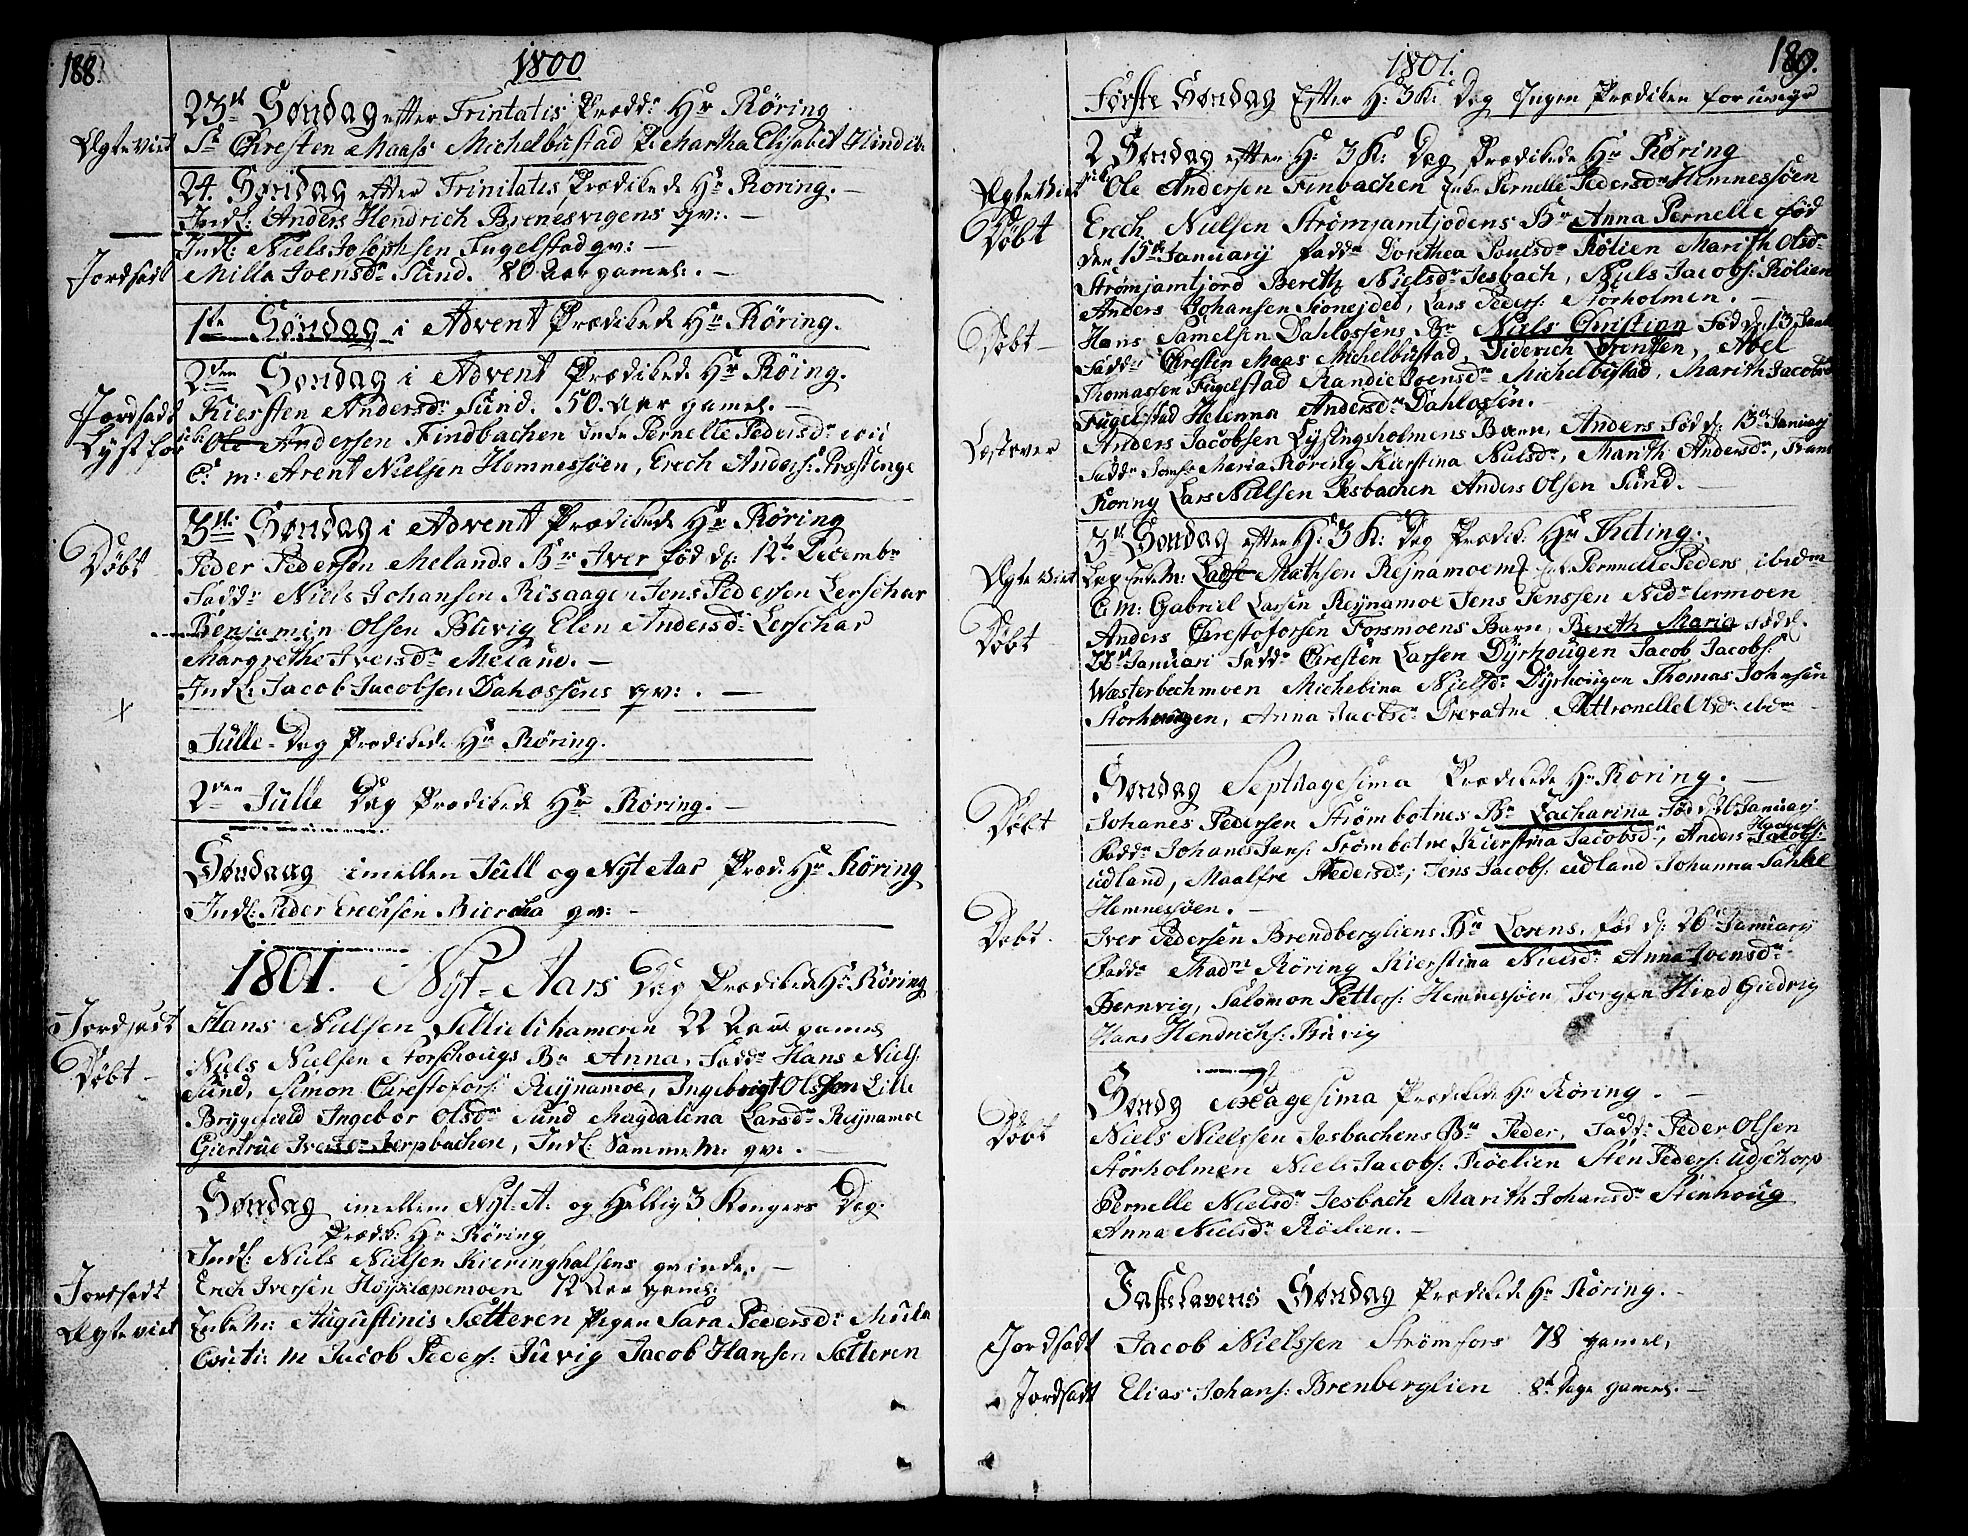 188.
1800
23de Søndag efter Trintatis Prædd: Hr Röring
Ægteviet Sr Chresten Maass Michelbustad P. Martha Elisabet Hind ibi
24. Søndag efter Trinitatis Prædikede Hr Roring. —
Indl: Anders Hendrich Brenesvigens qv: —
Indl: Niels Josephsen Fugelstad qv: —
Jordfæst Milla Ivensdr Sund. 80 Aar gamel. —
1ste Søndag i Advent Prædikede Hr Röring.
2den Søndag i Advent Prædikede Hr Röing.
Jordfæst Kiersten Andersdr Sund. 50. Aar gamel. —
Lyst for Ole Andersen Findbachen Enke Pernelle Pedersdr
C: m: Arent Nielsen Hemnessöen, Erech Anders: Præstenge
3de Søndag i Advent Prædikede Hr Röring
Döbt Peder Pedersen Melands Bn Iver fød d: 12te Decembr
Fadd: Niels Johansen Rösaagen Jens Pedersen Lerschar
Benjamin Olsen Buvig Elen Andersd: Lerschar
Margrethe Iversdr Meland. —
Indl: Jacob Jacobsen Dahossens qv: . —
Julle-Dag Prædikede Hr Röring.
2den Julle Dag Prædikede Hr Röring. —
Søndag imellem Jull og Nyt Aar Præd: Hr Röring
Indl: Peder Erechsen Biercka qv: —
1801. Nyt-Aars Dag Prædikede Hr Röring
Jordfæst Hans Nielsen Sellielihameren 22 Aar gamel
Döbt — Niels Nielsen Storschougs Bn Anna, Fadd: Hans Niels:
Sund, Simon Chrestofors: Reijnamoe, Ingebrigt Olssøn Lille
Bryggefield Ingebor Olsdr Sund Magdalena Larsdr Reijnamoe
Giertrue Iversdr Jerpbachen, Indl: Samme m: qv: . —
Søndag imellem Nyt: A: og Hellig 3 Kongers Dag
Prædik: Hr Röring
Indl: Niels Nielsen Kieringhalsens qvinde. —
Jordfæst Erech Iversen Höyslepenmoen 72 Aar gamel:
Ægteviet Enkem: Augustinis Sætteren Pigen Sara Pedersdr
Couti: m Jacob Peders: Juvig Jacob Hansen Sætteren
1801.
189.
Første Søndag Efter H: 3 K: Dag Ingen Prædiken for uveyr
2 Søndag efter H: 3 K: Dag Prædikede Hr Röring
Ægteviet Ole Andersen Finbachen Enke Pernelle Pedersdr Hemnessöen
Döbt Erech Nielsen Strömjamtjodens Bn Anna Pernelle fød
den 15de January Fadd: Dorethea Poulsdr Rölien Marith Olsdr
Strömjamtjord Bereth Nielsdr Jesbach, Niels Jacobs: Rölien
Anders Johansen Stonejdet, Lars Peders: Storholmen. —
Döbt — Hans Samelsen Dahlossens Bn Niels Christian Fød d: 13 Janu
Fadd: Chresten Maas Michelbustad, Diderich Lorentsen, Abel
Thomassen Fugelstad Randie Ivensdr Michelbustad, Marith Jacobsdr
Fugelstad Helenna Andersdr Dahlossen.
Anders Jacobsen Lysingsholmens Barn, Anders Fød d: 13de January
Fadd: Jomfr Maria Röring Kierstina Nielsdr, Marith Andersdr, Frans
Roring Lars Nielsen Jesbachen Anders Olsen Sund.
3de Søndag efter H: 3 K: Dag Prædik: Hr Theting.
Ægteviet Mathsen Rejnamoen Pernelle Peders ibidm
C: m: Gabriel Larsen Reijnamoe Jens Jenssen Nedlermoen
Döbt Anders Chrestoforsen Forsmoens Barn, Bereth Maria Fød d:
22de Januari Fadd: Chresten Larsen Dÿrhougen Jacob Jacobs:
Wæsterbechmoen Michelina Nielsdr Dÿrhougen Thomas Johnsen
Storhougen, Anna Jacobsdr Drevatne Pettronelle Olsdr ibdm —
Søndag Septuagesima Prædikede Hr Röring. —
Döbt Johanes Pedersen Strömbotnes Bn Zacharina Fød d: 26 January
Fadd: Johanes Jans: Strömbotne Kierstina Jacobsdr, Anders Jacobs:
Udland, Maalfre Pedersdr, Jens Jacobs: Udland Johanna
Hemnessöen. —
Döbt. Iver Pedersen Brendbergliens Bn Lorens, Fød d: 26 January
Fadd: Madm Röring Kierstina Nielsdr Anna Ivensdr
Bernvig, Salomon Petters: Hemnessöen Jorgen Hind Giedvig
Hans Hendrichs: Buvig
Søndg Sexagesima Prædikede Hr Röring. —
Döbt Niels Nielssen Jesbachens Bn Peder, Fadd: Peder Olsen
Storholmen Niels Jacobs: Röelien Sten Peders: Udschorp
Pernelle Nielsdr Jesbach Marith Johansdr Stenhoug
Anna Nielsdr Röelien. —
Fastelavens Søndag Prædikede Hr Röring. —
Jordfæst Jacob Nielssen Strömfors 78 gamel,
Jordfæst Elias Johans: Brenberglien 8te Dage gamel. —